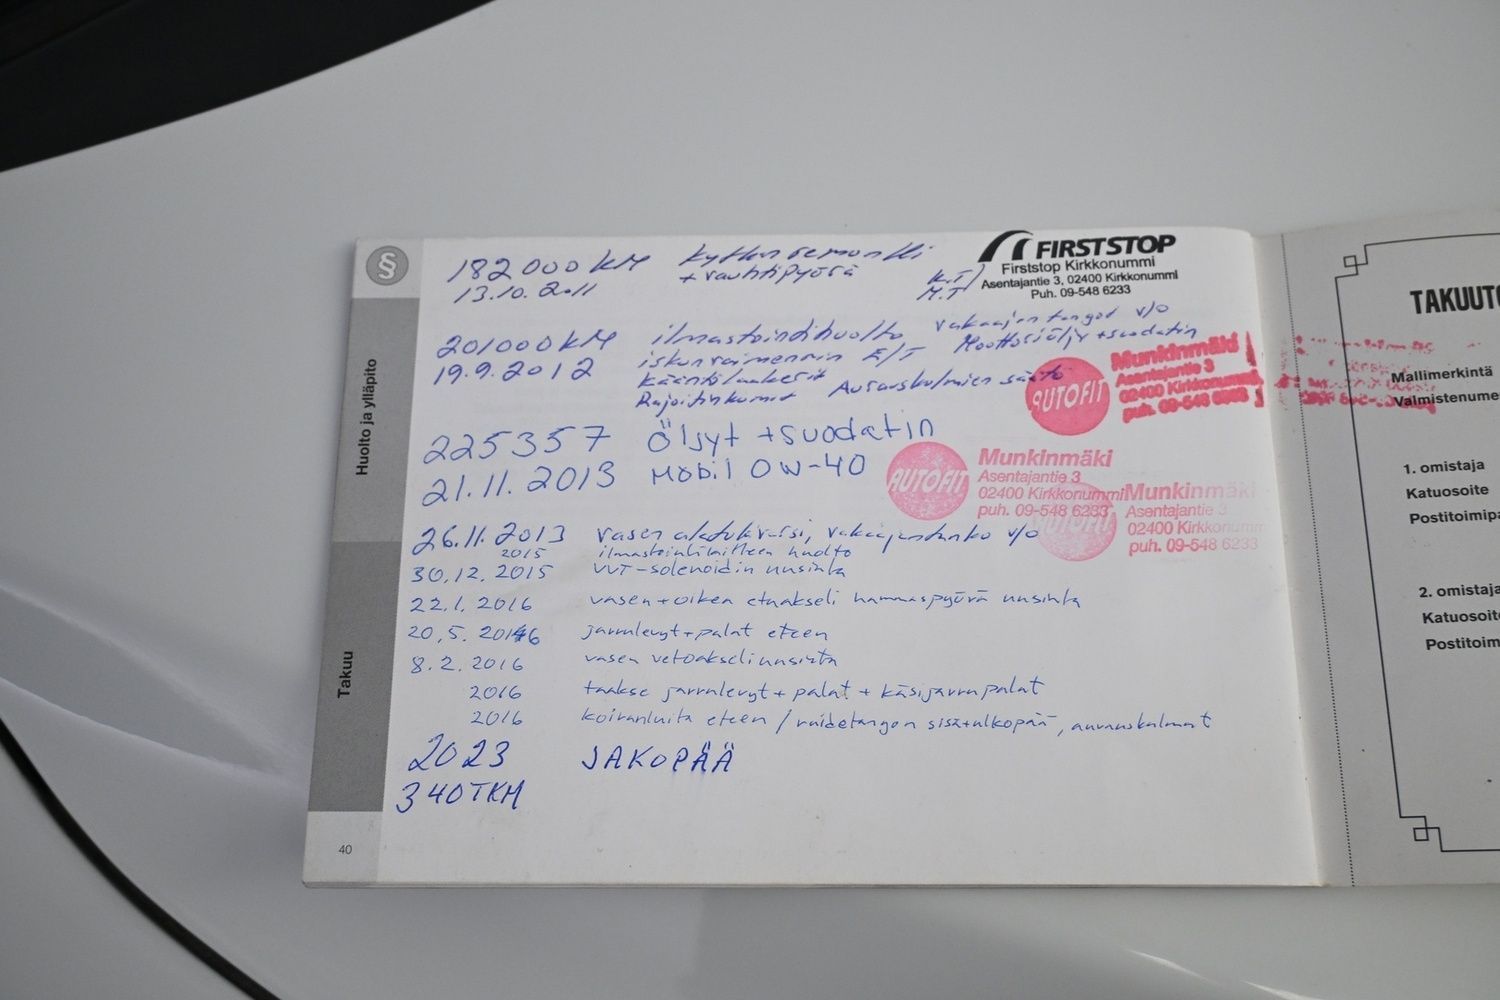 §
Huolto ja ylläpito
Takuu
182 000 KM kytkinremontti
13.10.2011 + vauhtipyörä
K.T/
M.T
FIRST STOP
Firststop Kirkkonummi
Asentajantie 3, 02400 Kirkkonummi
Puh. 09-548 6233
201000 KM ilmastointihuolto vakaajan tangot v/o
19.9.2012 iskunvaimennin E/T Moottoriöljy + suodatin
Kääntölaakerit Aurauskulmien säätö
Rajoitinkumit
AUTOFIT
Munkinmäki
Asentajantie 3
02400 Kirkkonummi
puh. 09-548 6233
225357 Öljyt + suodatin
21.11.2013 Mobil 0W-40
AUTOFIT
Munkinmäki
Asentajantie 3
02400 Kirkkonummi
puh. 09-548 6233
AUTOFIT
Munkinmäki
Asentajantie 3
02400 Kirkkonumm
puh. 09-548 6233
26.11.2013 vasen alatukivarsi, vakaajantanko v/o
2015 ilmastointilaitteen huolto
30.12.2015 VVT-solenoidin uusinta
22.1.2016 vasen+oikea etuakseli hammaspyörä uusinta
20.5.2016 jarrulevyt+palat eteen
8.2.2016 vasen vetoakseli uusinta
2016 taakse jarrulevyt + palat + käsijarrupalat
2016 koiranluita eteen / raidetangon sisä+ulkopää, aurauskulmat
2023 JAKOPÄÄ
340TKM
40
TAKUUTO
Mallimerkintä
Valmistenume
1. omistaja
Katuosoite
Postitoimipa
2. omistaja
Katuosoite
Postitoim